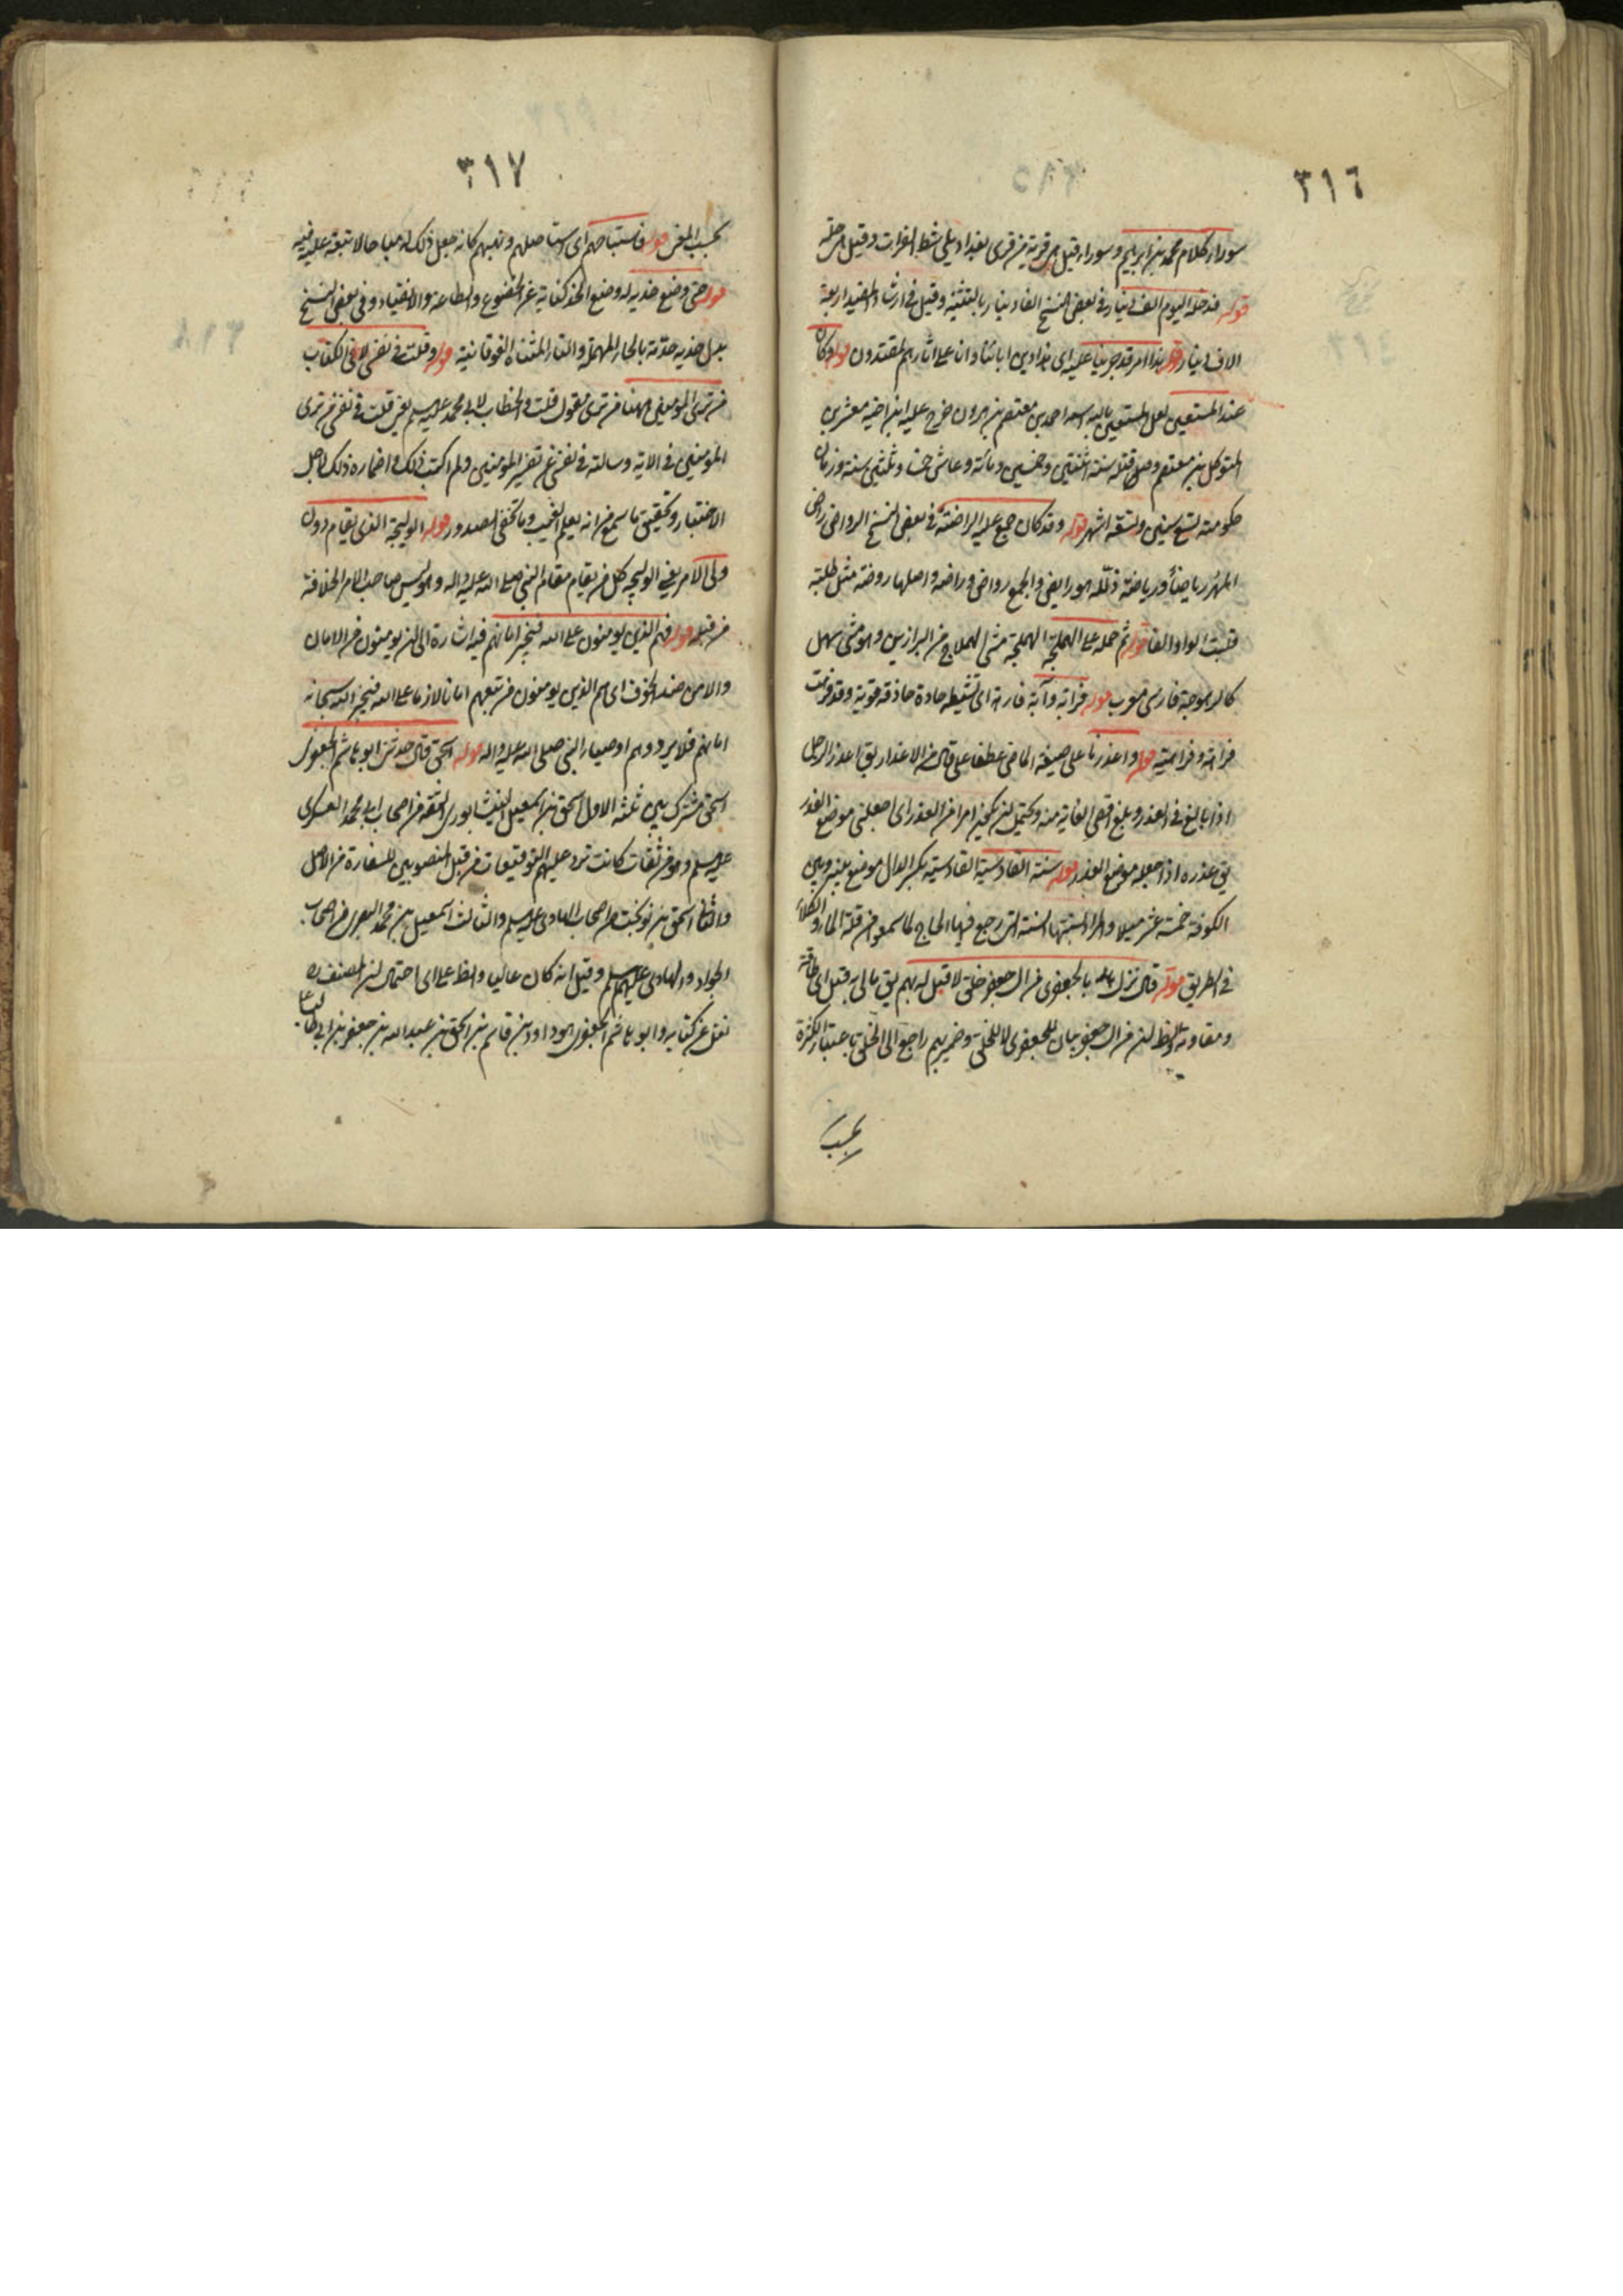 ٣١٦
سوراء كلام محمد بن ابرهيم وسوراء قيل هي قرية من قرى بغداد يلي شط الفرات وقيل هي حلة
قوله فدخله اليوم الف دينار في بعض النسخ الفا دينار بالتثنية وقيل في ارشاد المفيد اربعة
الاف دينار قوله هذا امر قد جرينا عليه اى هذا دين ابائنا وانا على اثارهم لمقتدون قوله وكان
عند المستعين لعل المستعين بالله اسمه احمد بن معتصم بن هرون خرج عليه ابن اخيه معتز بن
المتوكل بن معتصم وصار قتله سنة اثنتين وخمسين ومائة وعاش خمسا وثلثين سنة وزمان
حكومته تسع سنين وتسعة اشهر قوله وقد كان جمع عليه الراضة في بعض النسخ الرواض راض
المهر رياضا ورياضة ذلله هو رايض والجمع رواض وراضة واصلها روضة مثل طلبة
قلبت الواو الفا قوله ثم حمله على الهملجة الهملجة مشى الهملاج من البراذين وهو مشى سهل
كالرهوجة فارسى معرب قوله فراهة دابة فارهة اى نشيطة حادة حاذقة قوية وقد فرهت
فراهة وفراهية قوله واعذرنا على صيغة الماضى عطفا على قال من الاعذار يق اعذر الرجل
اذا بالغ في العذر وبلغ اقصى الغاية منه ويحتمل ان يكون امرا من العذر اى اجعلنى موضع العذر
يق عذره اذا جعله موضع العذر قوله سنة القادسية القادسية بكسر الدال موضع بينه وبين
الكوفة خمسة عشر ميلا والمراد بسنتها السنة التى رجع فيها الحاج لما سمعوا من قلة الماء والكلاء
في الطريق قوله قال نزل بالجعفرى من ال جعفر خلق لا قبل له بهم يق مالى به قبل اى طاقة
ومقاومة والظ ان من ال جعفر بيان للجعفرى لا للخلق وضمير بهم راجع الى الخلق باعتبار الكثرة
بحسب
٣١٧
بحسب المعنى قوله فاستباحهم اى استاصلهم ونهبهم كانه جعل ذلك له مباحا لا تبعة عليه فيه
قوله حتى وضع خديه له وضع الخد كناية عن الخضوع والطاعة والانقياد وفي بعض النسخ
بدل خديه حدته بالحاء المهملة والتاء المثناة الفوقانية قوله وقلت في نفسى لا في الكتاب
من ترى المؤمنين ههنا من ترى تقول قلت والخطاب لابى محمد عليه السلم يعنى قلت في نفسى من ترى
المؤمنين في الاية وسالته في نفسى عن تفسير المؤمنين ولم اكتب ذلك واضماره ذلك لاجل
الاختبار وتحقيق ما سمع من انه يعلم الغيب وما تخفى الصدور قوله الوليجة الذى يقام دون
ولى الامر يعنى الوليجة كل من يقام مقام النبي صلى الله عليه واله وليس صاحب الامر الخلافة
من قبله قوله فهم الذين يؤمنون على الله فيجيز امانهم فيه اشارة الى ان يؤمنون من الامان
والامن ضد الخوف اى هم الذين يؤمنون من تبعهم امانا لازما على الله فيجيز الله سبحانه
امانهم فلا يرده وهم اوصياء النبي صلى الله عليه واله قوله اسحق قال حدثنى ابو هاشم الجعفرى
اسحق مشترك بين ثلثة الاول اسحق بن اسمعيل النيشابورى الثقة من اصحاب ابى محمد العسكرى
عليه السلم وهو من ثقات كانت ترد عليهم التوقيعات من قبل المنصوبين للسفارة من الاصل
والثانى اسحق بن نوبخت من اصحاب الهادى عليه السلم والثالث اسمعيل بن محمد البصرى من اصحاب
الجواد والهادى عليهم السلم وقيل انه كان غاليا والظ على اى احتمال ان المصنف ره
نقل عن كتابه وابو هاشم الجعفرى هو داود بن قاسم بن اسحق بن عبد الله بن جعفر بن ابى طالب